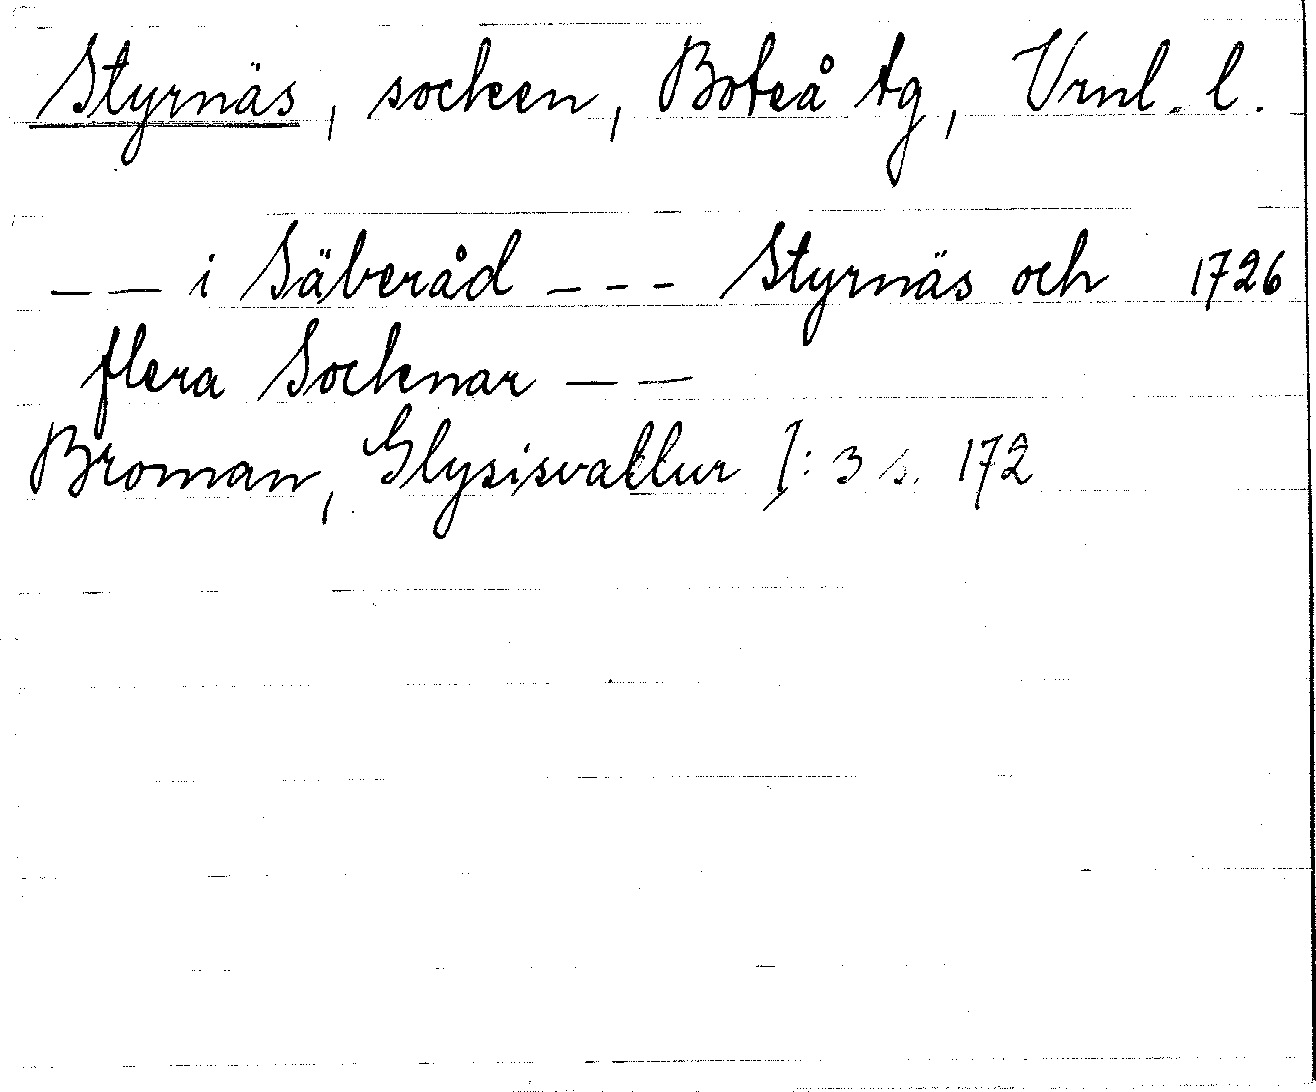 Styrnäs, socken, Boteå tg, Vrnl. l.
— — i Säberåd - - - Styrnäs och 1726
flera Socknar — —
Broman, Glysisvallur I: 3 s. 172